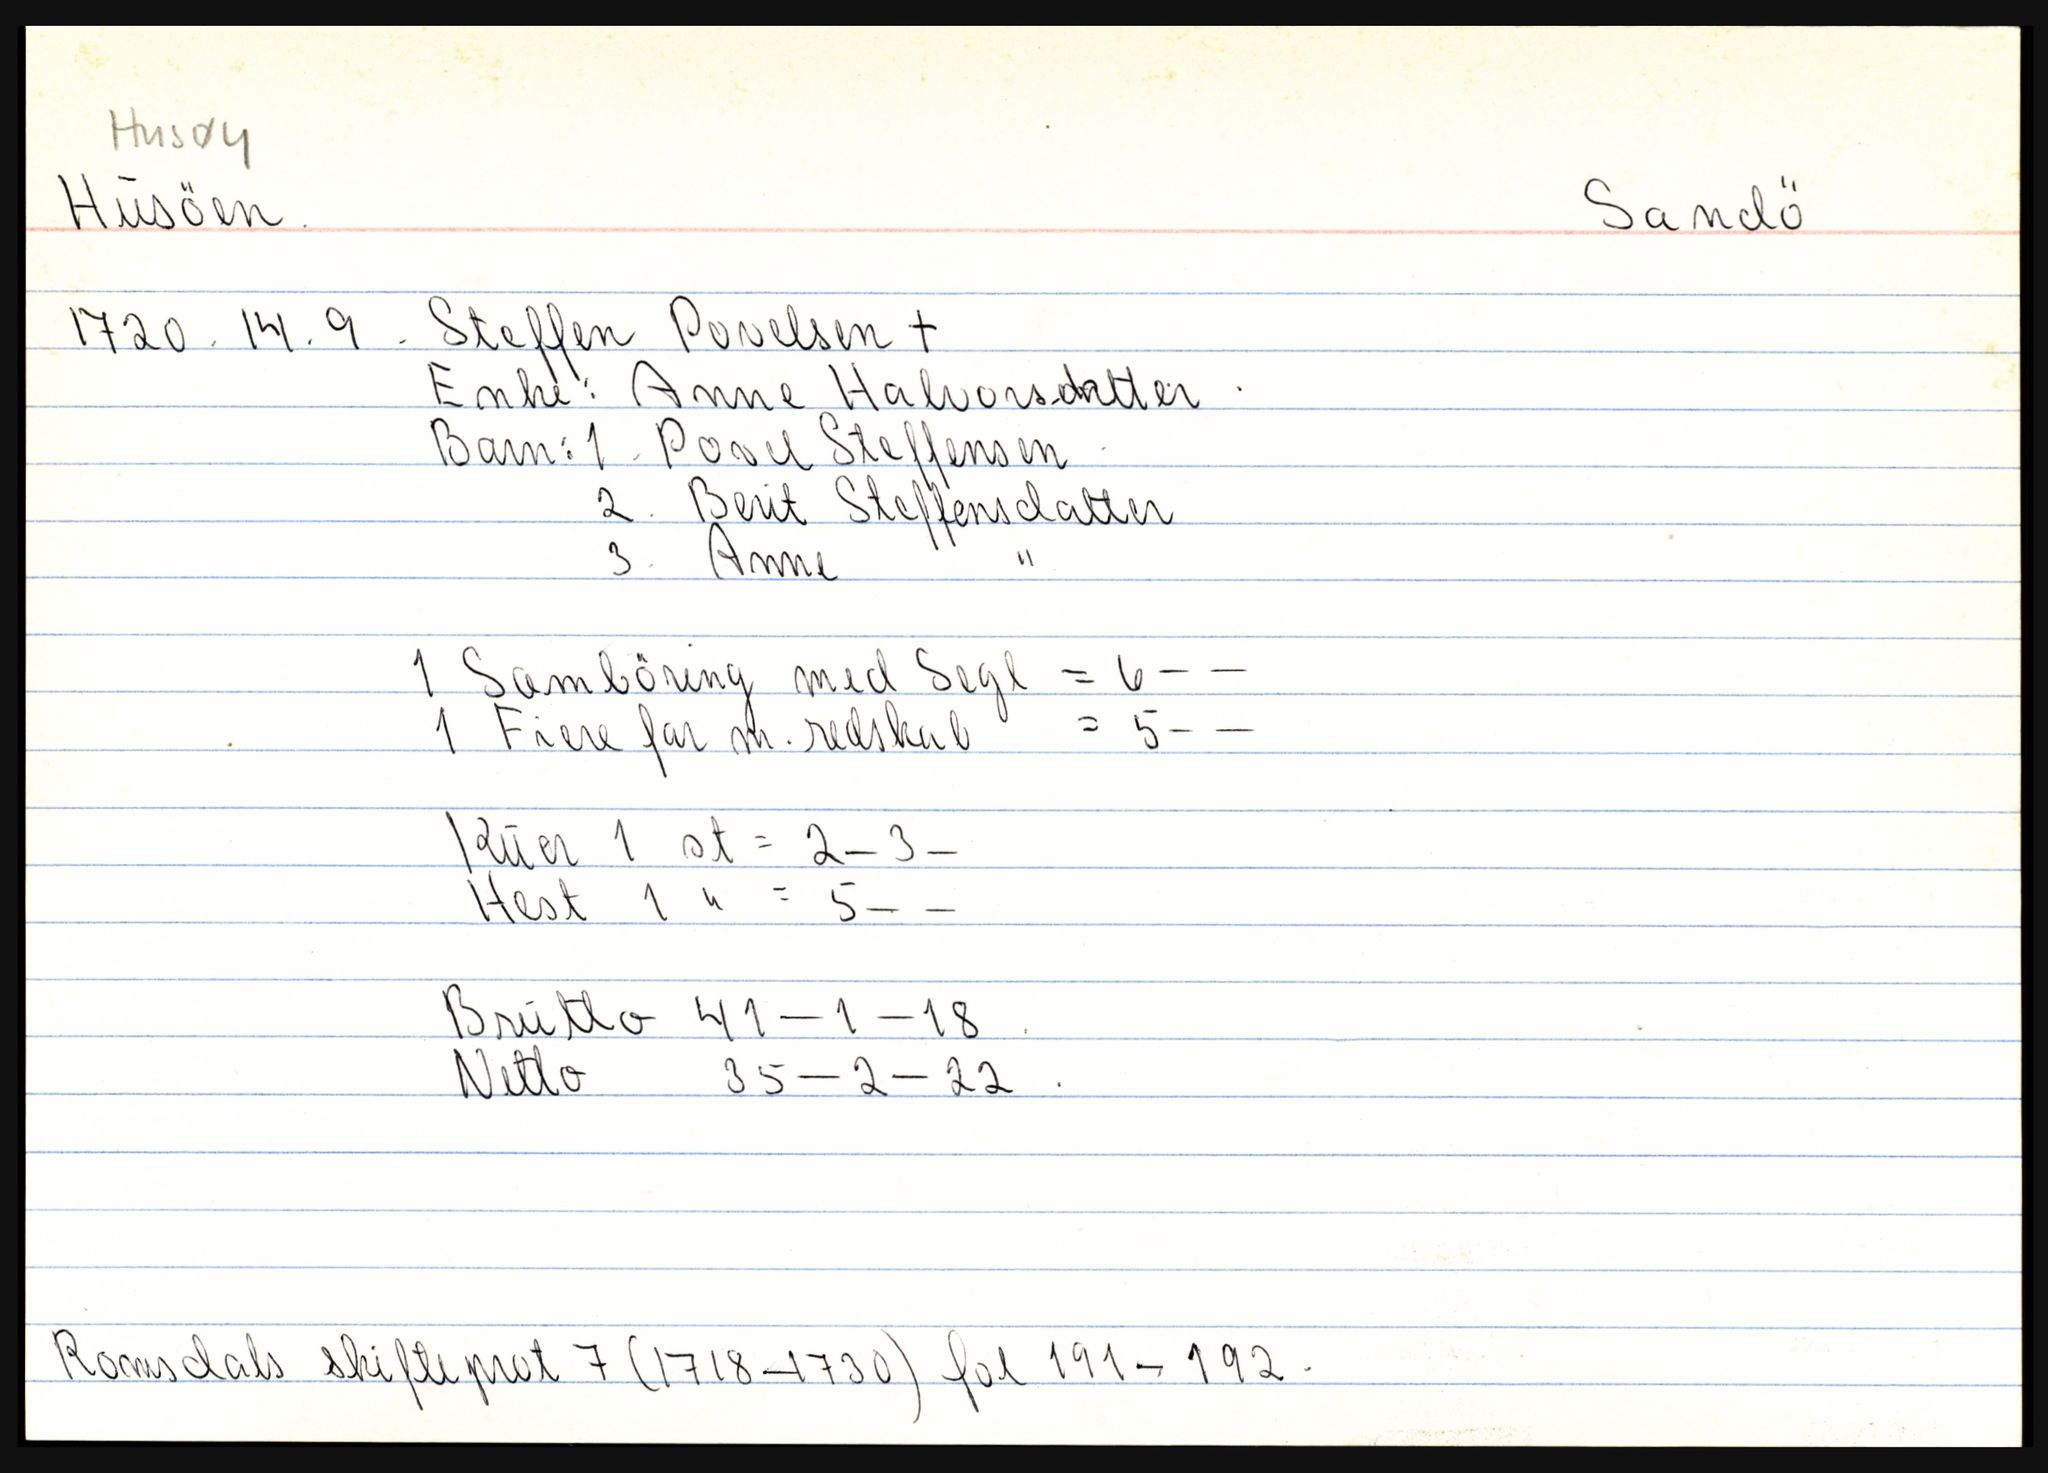 Husøy
Hūsöen. Sandö
1720. 14.9. Steffen Povelsen +
Enke: Anne Halvorsdatter.
Barn: 1. Povel Steffensen.
2. Berit Steffensdatter
3. Anne "
1 Samböring med Segl = 6 – –
1 Fiere far m. redskab = 5 – –
Kūer 1 st = 2 – 3 –
Hest 1 " = 5 – –
Brūtto 41 – 1 – 18.
Netto 35 – 2 – 22.
Romsdals skifteprot 7 (1718–1730) fol 191 – 192.